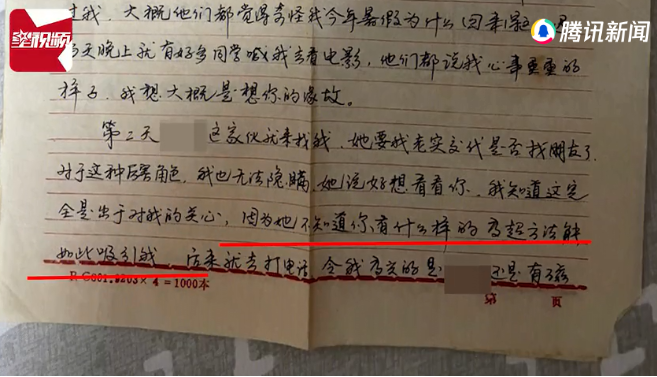 星视频
腾讯新闻
过我，大概他们都觉得奇怪我今年暑假为什么回来得
当天晚上就有好多同学喊我去看电影，他们都说我心事重重的
样子，我想大概是想你的缘故。
第二天 这家伙就来找我，她要我老实交代是否找朋友了
对于这种厉害角色，我也无法隐瞒，她说好想看看你，我知道这完
全是出于对我的关心，因为她不知道你有什么样的高超方法能
如此吸引我，后来就去打电话，令我高兴的是 还是有
1000本
第 页